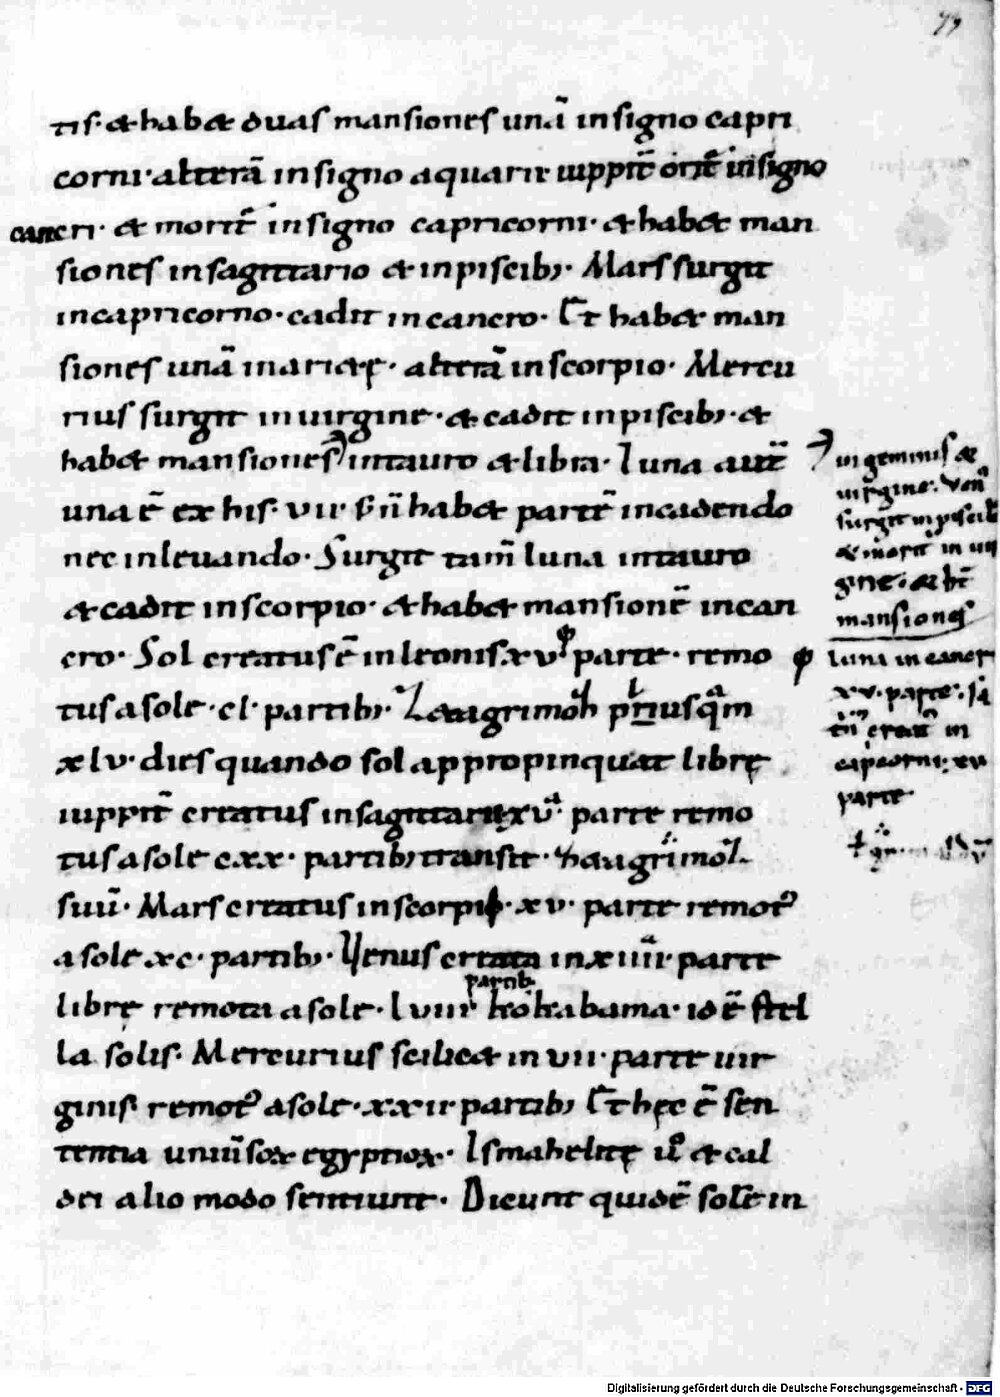 79
tis· et habet duas mansiones unā in signo capri
corni· alterā in signo aquarii iuppit̄ orit̄ in signo
cancri· et morit̄ in signo capricorni· et habet man
siones in sagittario et in piscib;· Mars surgit
in capricorno· cadit in cancro· Et habet man
siones unā in ariete· alterā in scorpio· Mercu
rius surgit in uirgine· et cadit in piscib;· et
habet mansiones in tauro et libra· Luna aut̄
una ē ex his· vii· s; n̄ habet partē in cadendo
nec in leuando· Surgit tam̄ luna in tauro
et cadit in scorpio· et habet mansionē in can
cro· Sol creatus ē in leonis· xv parte· remo
tus a sole· cl· partib;· priusqām
xlv· dies quando sol appropinquat librę
iuppit̄ creatus in sagittarii xv· parte remo
tus a sole cxx· partib; transit·
suū· Mars creatus in scorpio· xv· parte remot᾽
a sole xc· partib;· Venus creata in xiiii· parte
partib·
librę remota a sole· lviii hohabama· id ē stel
la solis· Mercurius scilicet in vii· parte uir
ginis· remot᾽ a sole· xxii partib; Et hęc ē sen
tentia egyptioꝝ· Ismahelitę ů et cal
dei alio modo sentiunt· Dicunt quidē solē in
in geminis et
uirgine· Ven᾽
surgit in piscib;
et morit̄ in uir
gine· et ht̄
mansiones
luna in cancr
xv· parte·
creat̄ in
cap̄corni· xv
parte
Digitalisierung gefördert durch die Deutsche Forschungsgemeinschaft - DFG